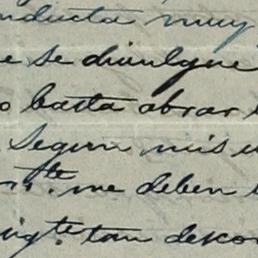 nducta muy
e se divulgue
o basta obrar
Segun mis
me deben
tan